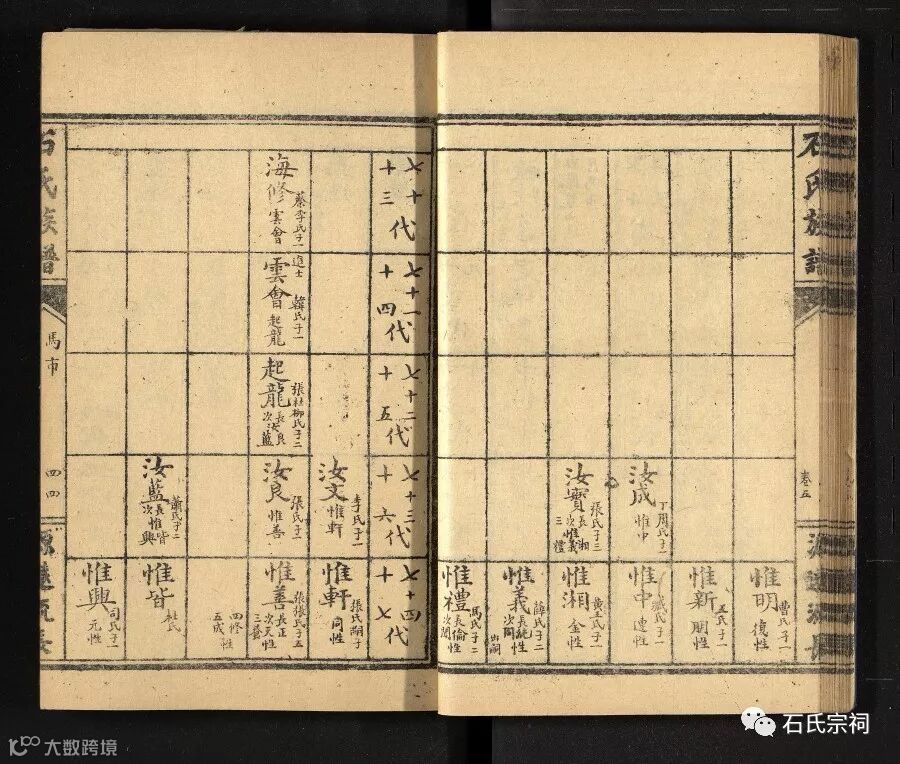 石氏族譜
卷五
源遠流長
汝成
丁周氏子一
惟中
汝寶
張氏子三
長惟湘
次惟義
三禮
惟明
曹氏子一
復性
惟新
王氏子一
明性
惟中
戚氏子一
連性
惟湘
黃王氏子一
金性
惟義
薛氏子二
長純性
次閣
出嗣
惟禮
馬氏子二
長倫性
次閣
七十代
十三
七十一代
十四
七十二代
十五
七十三代
十六
七十四代
十七
海修
蔡李氏子一
雲會
雲會
進士
韓氏子一
起龍
起龍
張杜柳氏子二
長汝良
次藍
汝文
李氏子一
惟軒
汝良
張氏子一
惟善
汝藍
蕭氏子二
長惟皆
次興
惟軒
張氏嗣子
同性
惟善
張張氏子五
長正性
次天性
三發
四修性
五成
惟皆
杜氏
惟興
司氏子一
元性
石氏族譜
馬市
四四
源遠流長
石氏宗祠
大数跨境